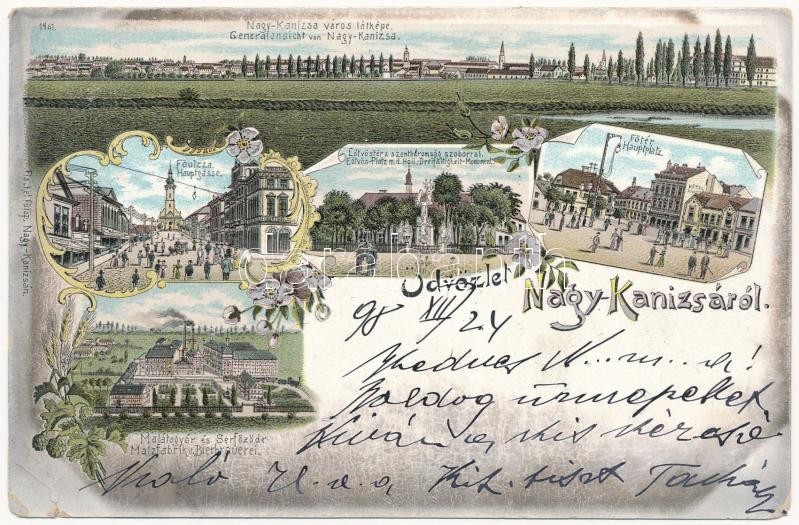 1461.
Nagy-Kanizsa város látképe.
Generalansicht von Nagy-Kanizsa.
Főutcza.
Hauptgasse.
Eötvöstér a szentháromság szoborral.
Eötvös-Platz m.d. Heil. Dreifaltigkeit-Monument.
Főtér.
Hauptplatz.
Fischel Fülöp, Nagy-Kanizsán.
Üdvözlet
Nagy-Kanizsáról.
98 XII/24
Kedves N... m. a!
Boldog ünnepeket
Kíván a kis
Malátagyár és Serfőződe
Malzfabrik u. Bierbrauerei.
való
Kit. tiszt
darabanth